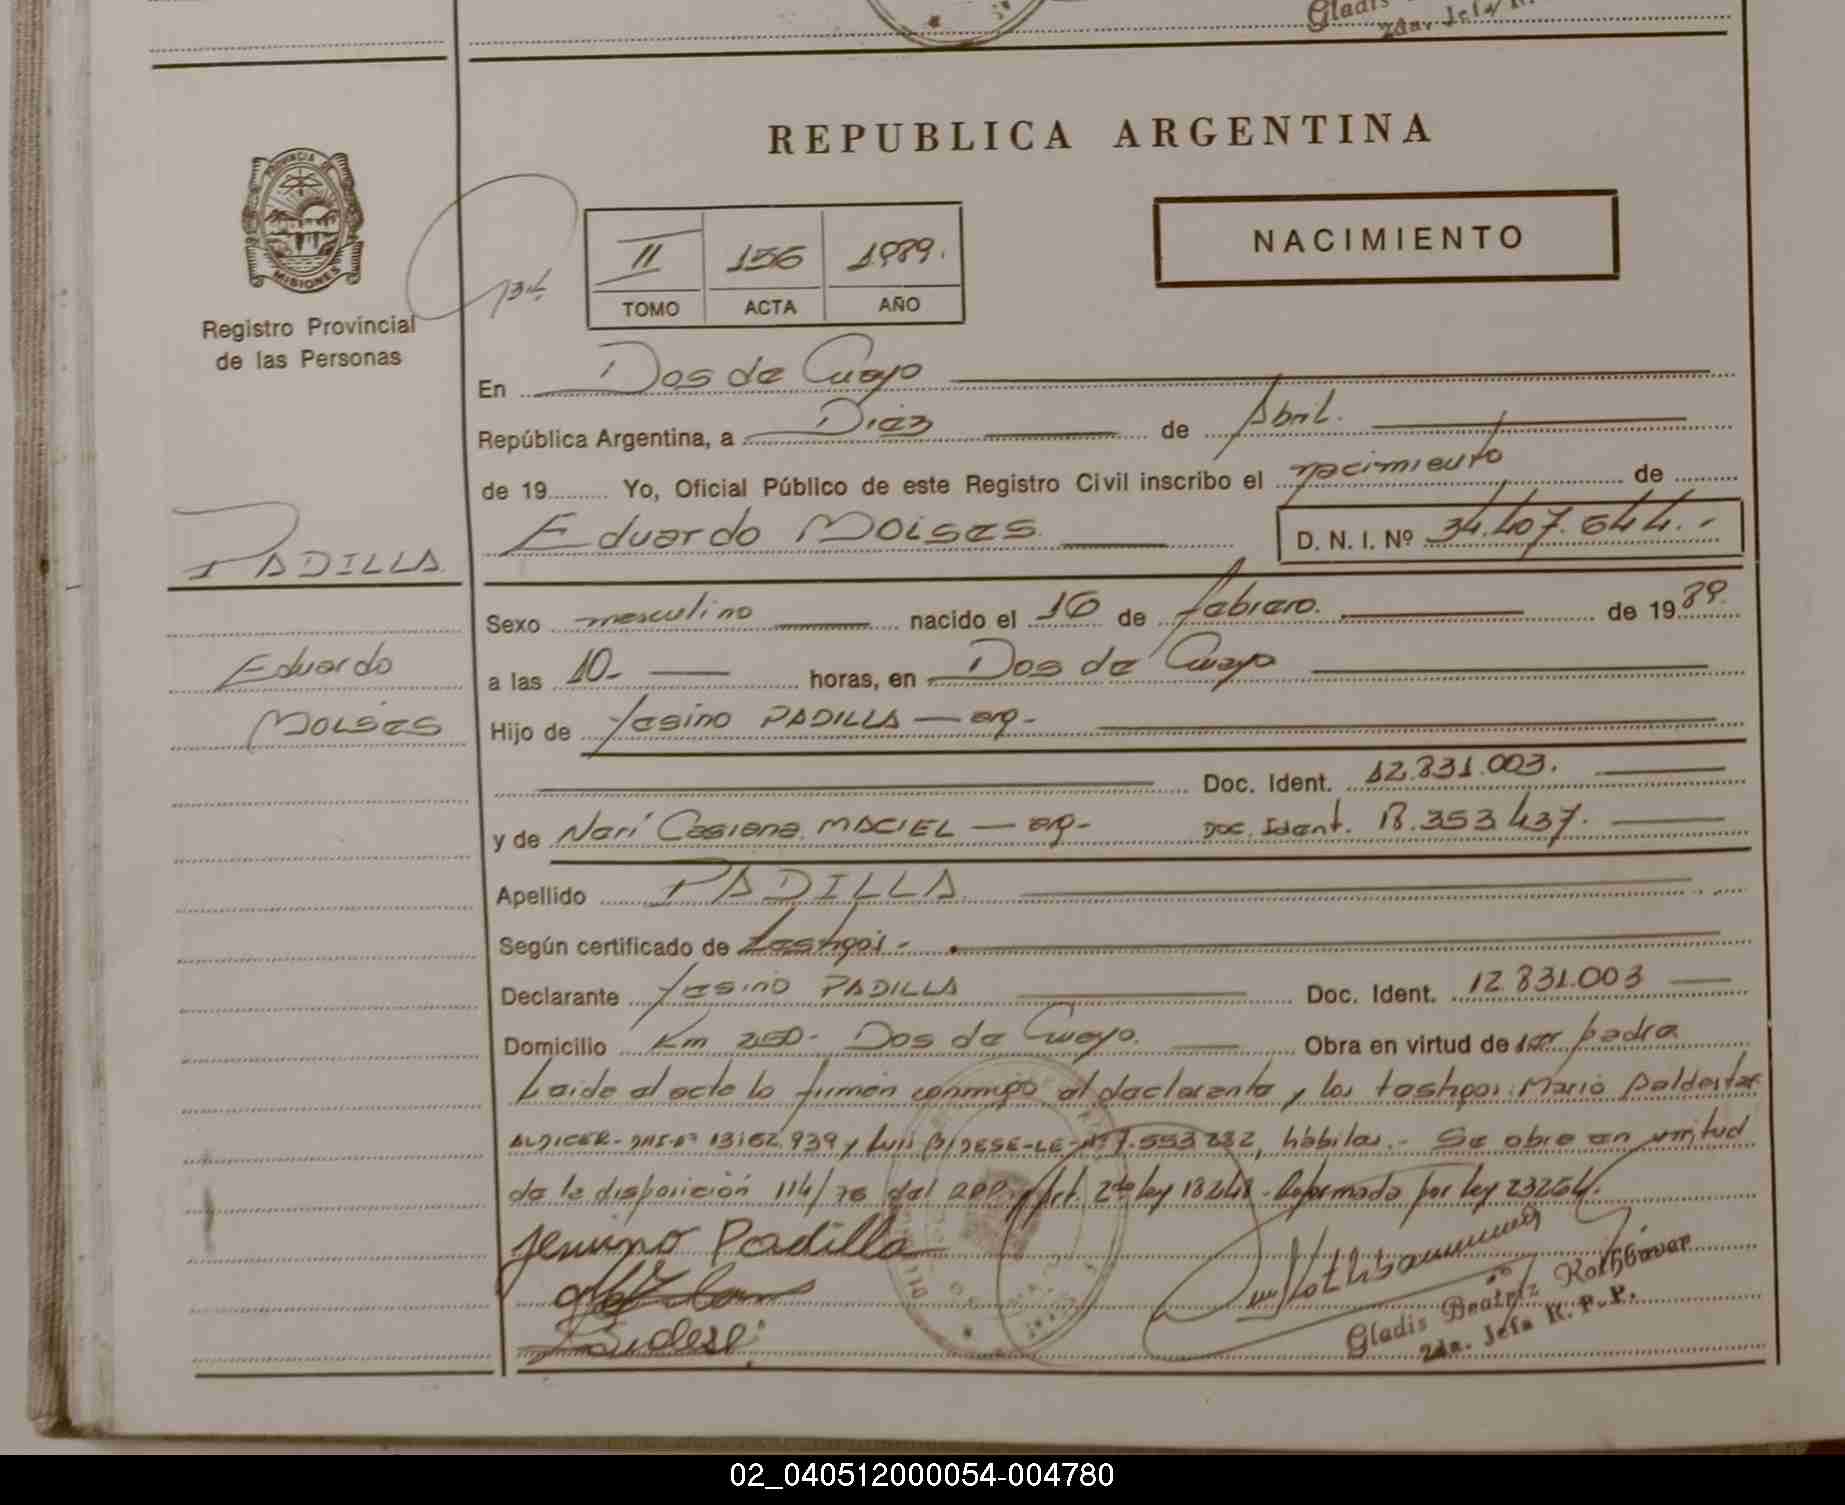 Gladis
2da. Jefa R.
REPUBLICA ARGENTINA
PROVINCIA DE
MISIONES
Registro Provincial
de las Personas
II 156 1989.
TOMO ACTA AÑO
NACIMIENTO
En Dos de Mayo
República Argentina, a Diez de Abril.
de 19 Yo, Oficial Público de este Registro Civil inscribo el nacimiento de
Eduardo Moises D. N. I. Nº 34.407.644.-
PADILLA
Eduardo
Moises
Sexo masculino nacido el 16 de febrero. de 1989.
a las 10- horas, en Dos de Mayo
Hijo de PADILLA — arg-
Doc. Ident. 12.831.003.
y de Casiana MACIEL — arg- Doc. Ident. 18.353.437.
Apellido PADILLA
Según certificado de testigos-
Declarante PADILLA Doc. Ident. 12.831.003
Domicilio Km 250- Dos de Mayo. Obra en virtud de ser padre
Leida el acta la firman conmigo el declarante y los testigos: Mario
DNI-Nº 13.162.939 y Luis BIDESE-LE-Nº 7.553.232, hábiles.- Se obra en virtud
de la disposición 114/76 del RPP. y Art. 2do ley 18248- Reformado por ley 23264.
Padilla
Bidese
Gladis Beatriz Rothbauer
2da. Jefa R. P. P.
02_040512000054-004780